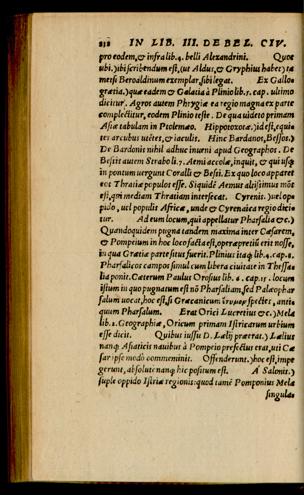 232 IN LIB. III. DE BEL. CIV.
pro eodem, & infra lib. 4. belli Alexandrini. Quot
ubi.) ibi scribendum est, (ut Aldus, & Gryphius habet) ta
metsi Beroaldinum exemplar, sibi legat. Ex Gallo⸗
græcia.) quæ eadem & Galatia à Plinio lib. 5. cap. ultimo
dicitur. Agros autem Phrygiæ ea regio magna ex parte
complectitur, eodem Plinio teste. De qua uideto primam
Asiæ tabulam in Ptolemæo. Hippotoxotæ.) id est, equi⸗
tes arcubus utētes, & iaculis. Hinc Bardanos, Bessos.)
De Bardonis nihil adhuc inueni apud Geographos. De
Bessis autem Strabo li. 7. Aemi accolæ, inquit, & qui usq;
in pontum uergunt Coralli & Bessi. Ex quo loco apparet
eos Thratiæ populos esse. Siquidē Aemus altissimus mōs
est, qui mediam Thratiam intersecat. Cyrenis.) uel op⸗
pido, uel populis Africæ, unde & Cyrenaica regio dici⸗
tur. Ad eum locum, qui appellatur Pharsalia &c.)
Quandoquidem pugna tandem maxima inter Cæsarem,
& Pompeium in hoc loco facta est, operæpretiū erit nosse,
in qua Græciæ parte situs fuerit. Plinius itaq; lib. 4. cap. 8.
Pharsalicos campos simul cum libera ciuitate in Thessa⸗
lia ponit. Cæterum Paulus Orosius lib. 6. cap. 15. locum
istum in quo pugnatum est nō Pharsaliam, sed Palæophar
salum uocat, hoc est, si Græcanicum spectes, anti⸗
quem Pharsalum. Erat Orici Lucretius &c.) Mela
lib. 2. Geographiæ, Oricum primam Istricarum urbium
esse dicit. Quibus iussu D. Lælij præerat.) Lælius
nanq; Asiaticis nauibus à Pompeio præfectus erat, uti Cæ
sar ipse modò commeminit. Offenderunt.) hoc est, impe
gerunt, absolute nanq; hic positum est. A Salonis.)
suple oppido Istriæ regionis: quod tamē Pomponius Mela
singula⸗